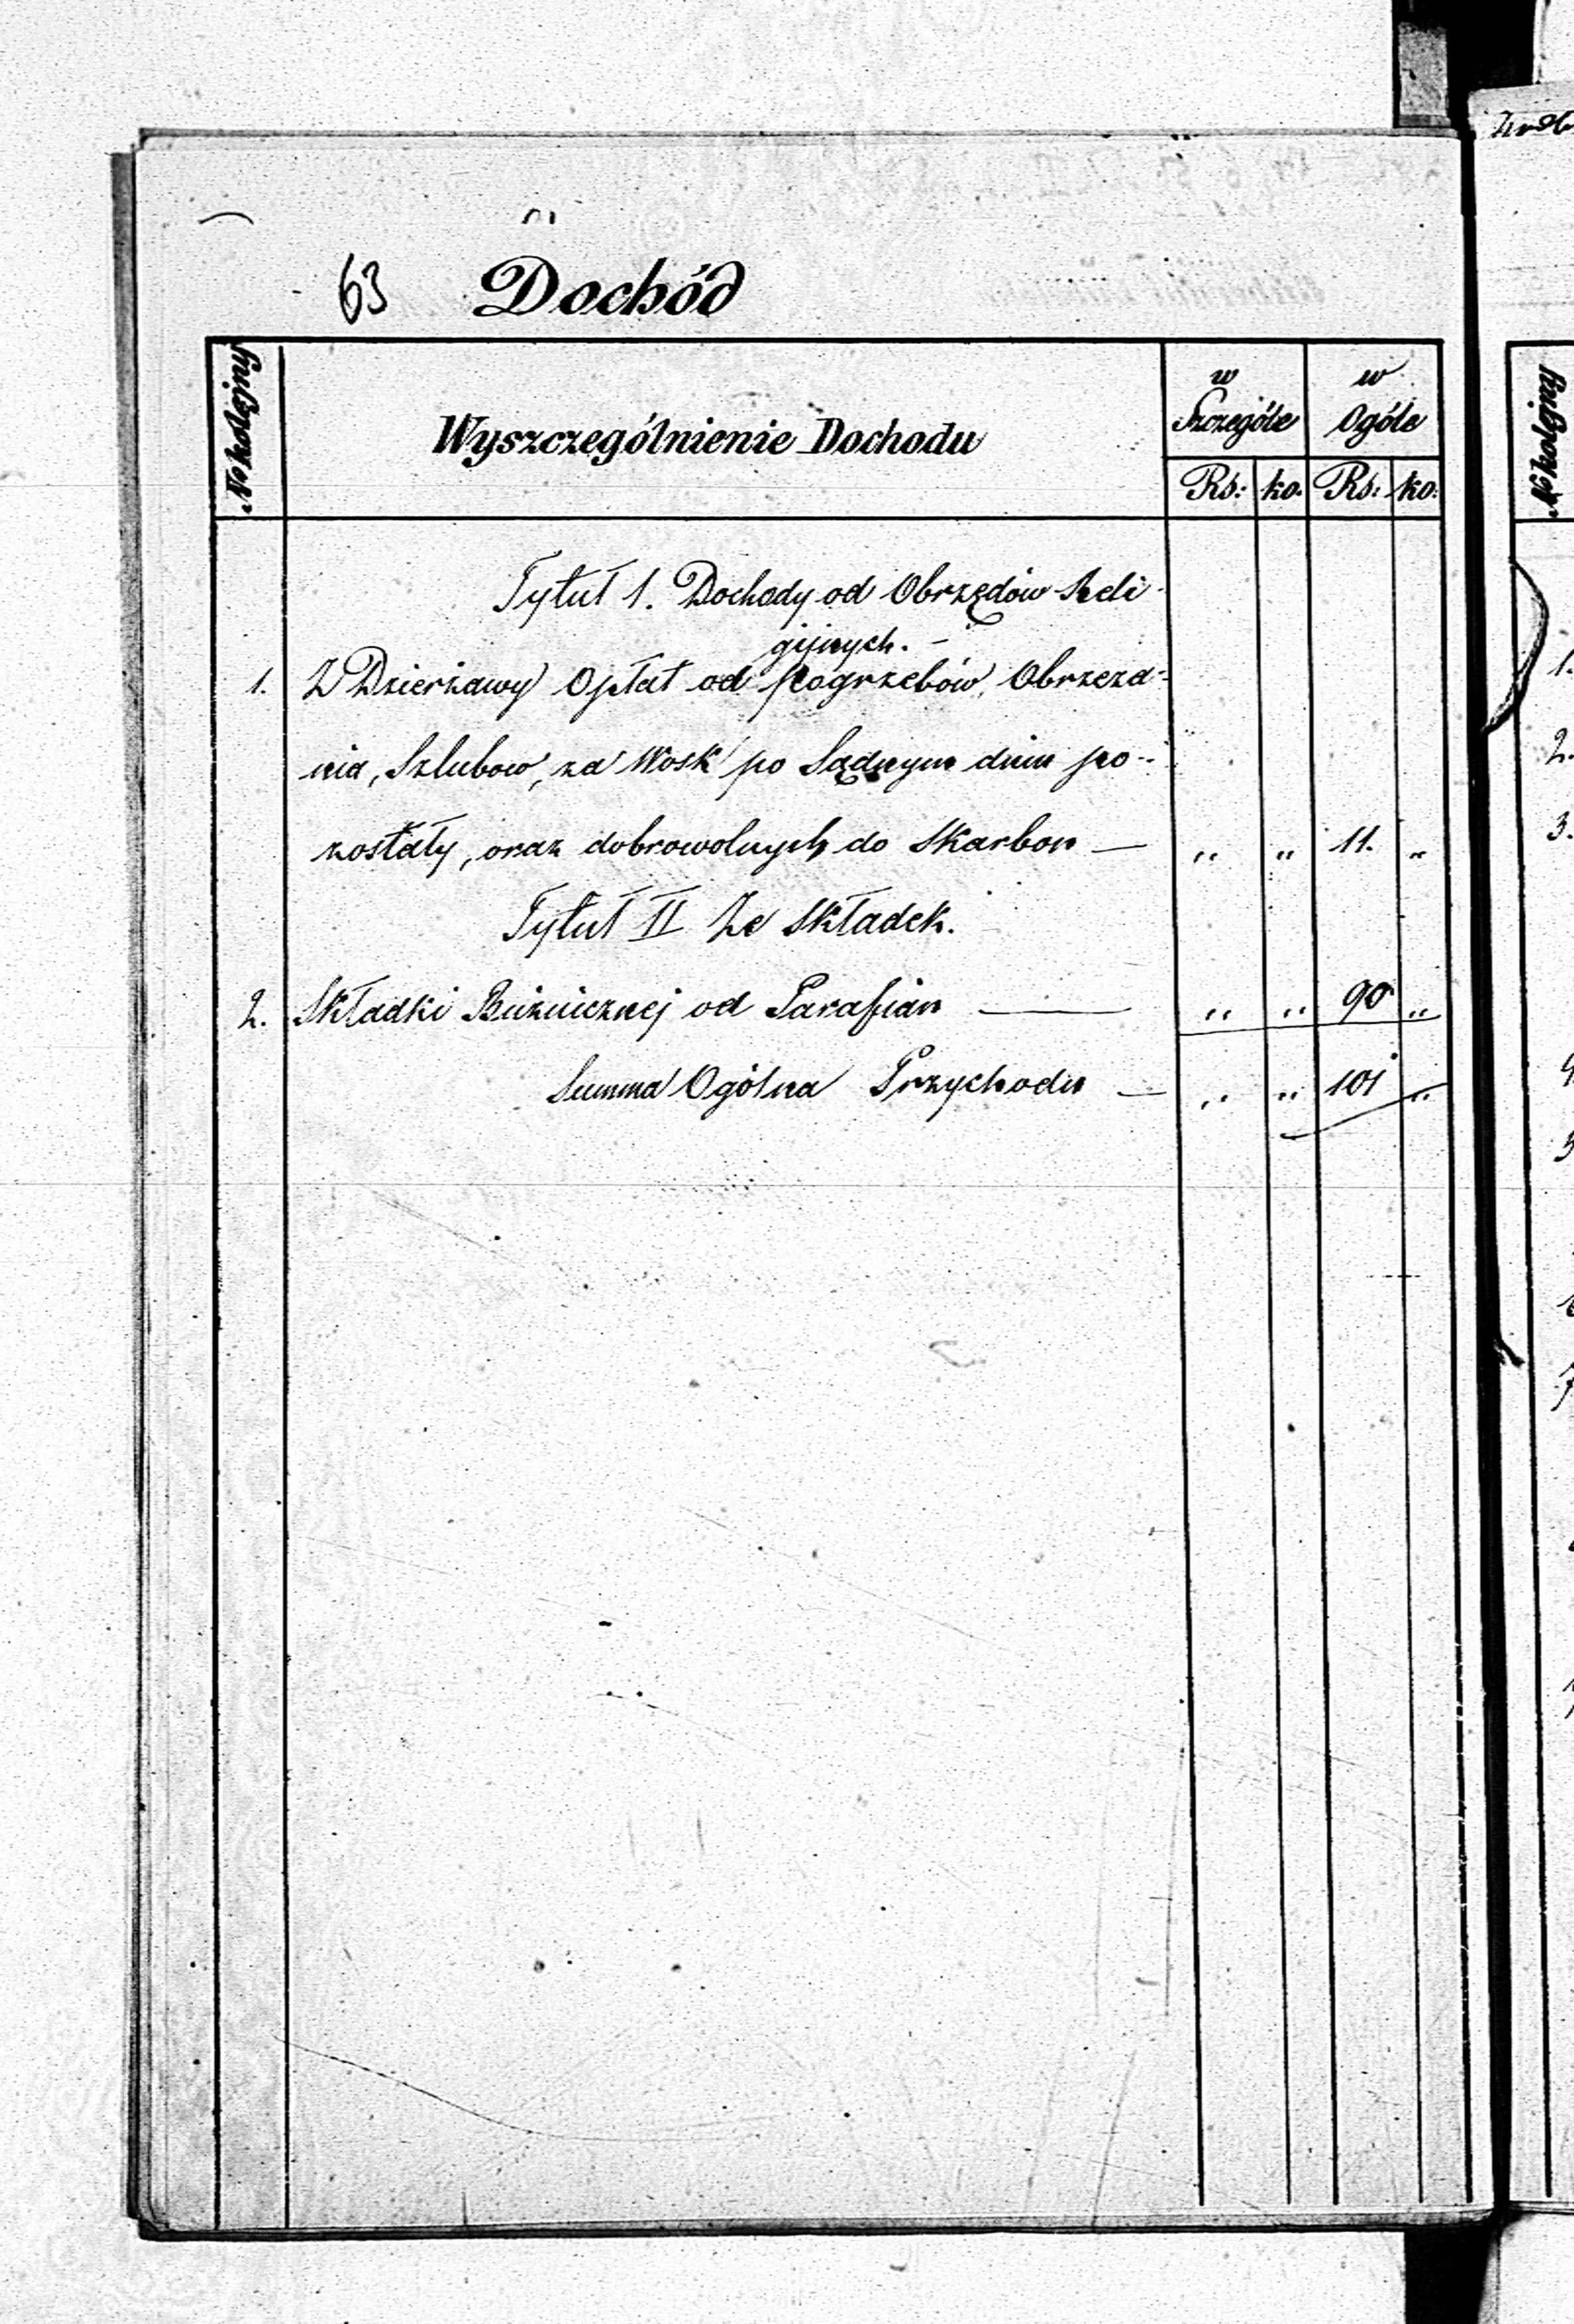 63 Dochód
No kolejny
Wyszczególnienie Dochodu
w Szczególe
w Ogóle
Rs: ko. Rs: ko:
Tytuł 1. Dochody od Obrzędów Reli-
gijnych. -
1. Z Dzierżawy Opłat od pogrzebów, Obrzeza-
nia, Szlubow, za Wosk po Sądnym dniu po-
zostały, oraz dobrowolnych do Skarbon — „ „ 11. „
Tytuł II Ze Składek.
2. Składki Bużnicznej od Parafian — „ „ 90 „
Summa Ogólna Przychodu — „ „ 101 „
No kolejny
1.
2.
3.